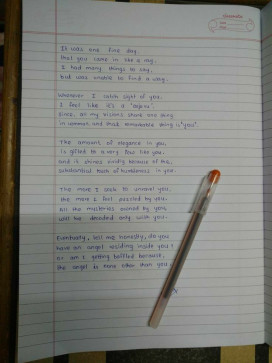 It was one fine day
that you came in like a ray,
I had many things to say,
but was unable to find a way.
Whenever I catch sight of you,
I feel like it's a
Since, all my visions share one thing
in common and that remarkable thing is "you".
The amount of elegance in you,
is gifted to a very few like you,
and it shines vividly because of the,
substantial of humbleness in you.
The more I seek to unravel you,
the more I feel puzzled by you,
All the mysteries owned by you,
will be decoded only with you.
Eventually, tell me honestly, do you
have an angel residing inside you?
or am I getting baffled because,
the angel is none other than you